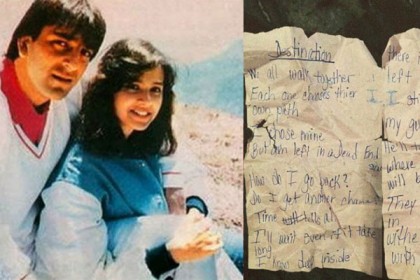 Distinction
We all walk together
Each one chooses thier
own path
I chose mine
But am left in a Dead End
How do I go back?
Do I get another chance
Time will tells all
I'll wait even if it takes
long
I know deep inside
there i
left
I sti
my
He'll t
where
will b
They
in
withe
wis